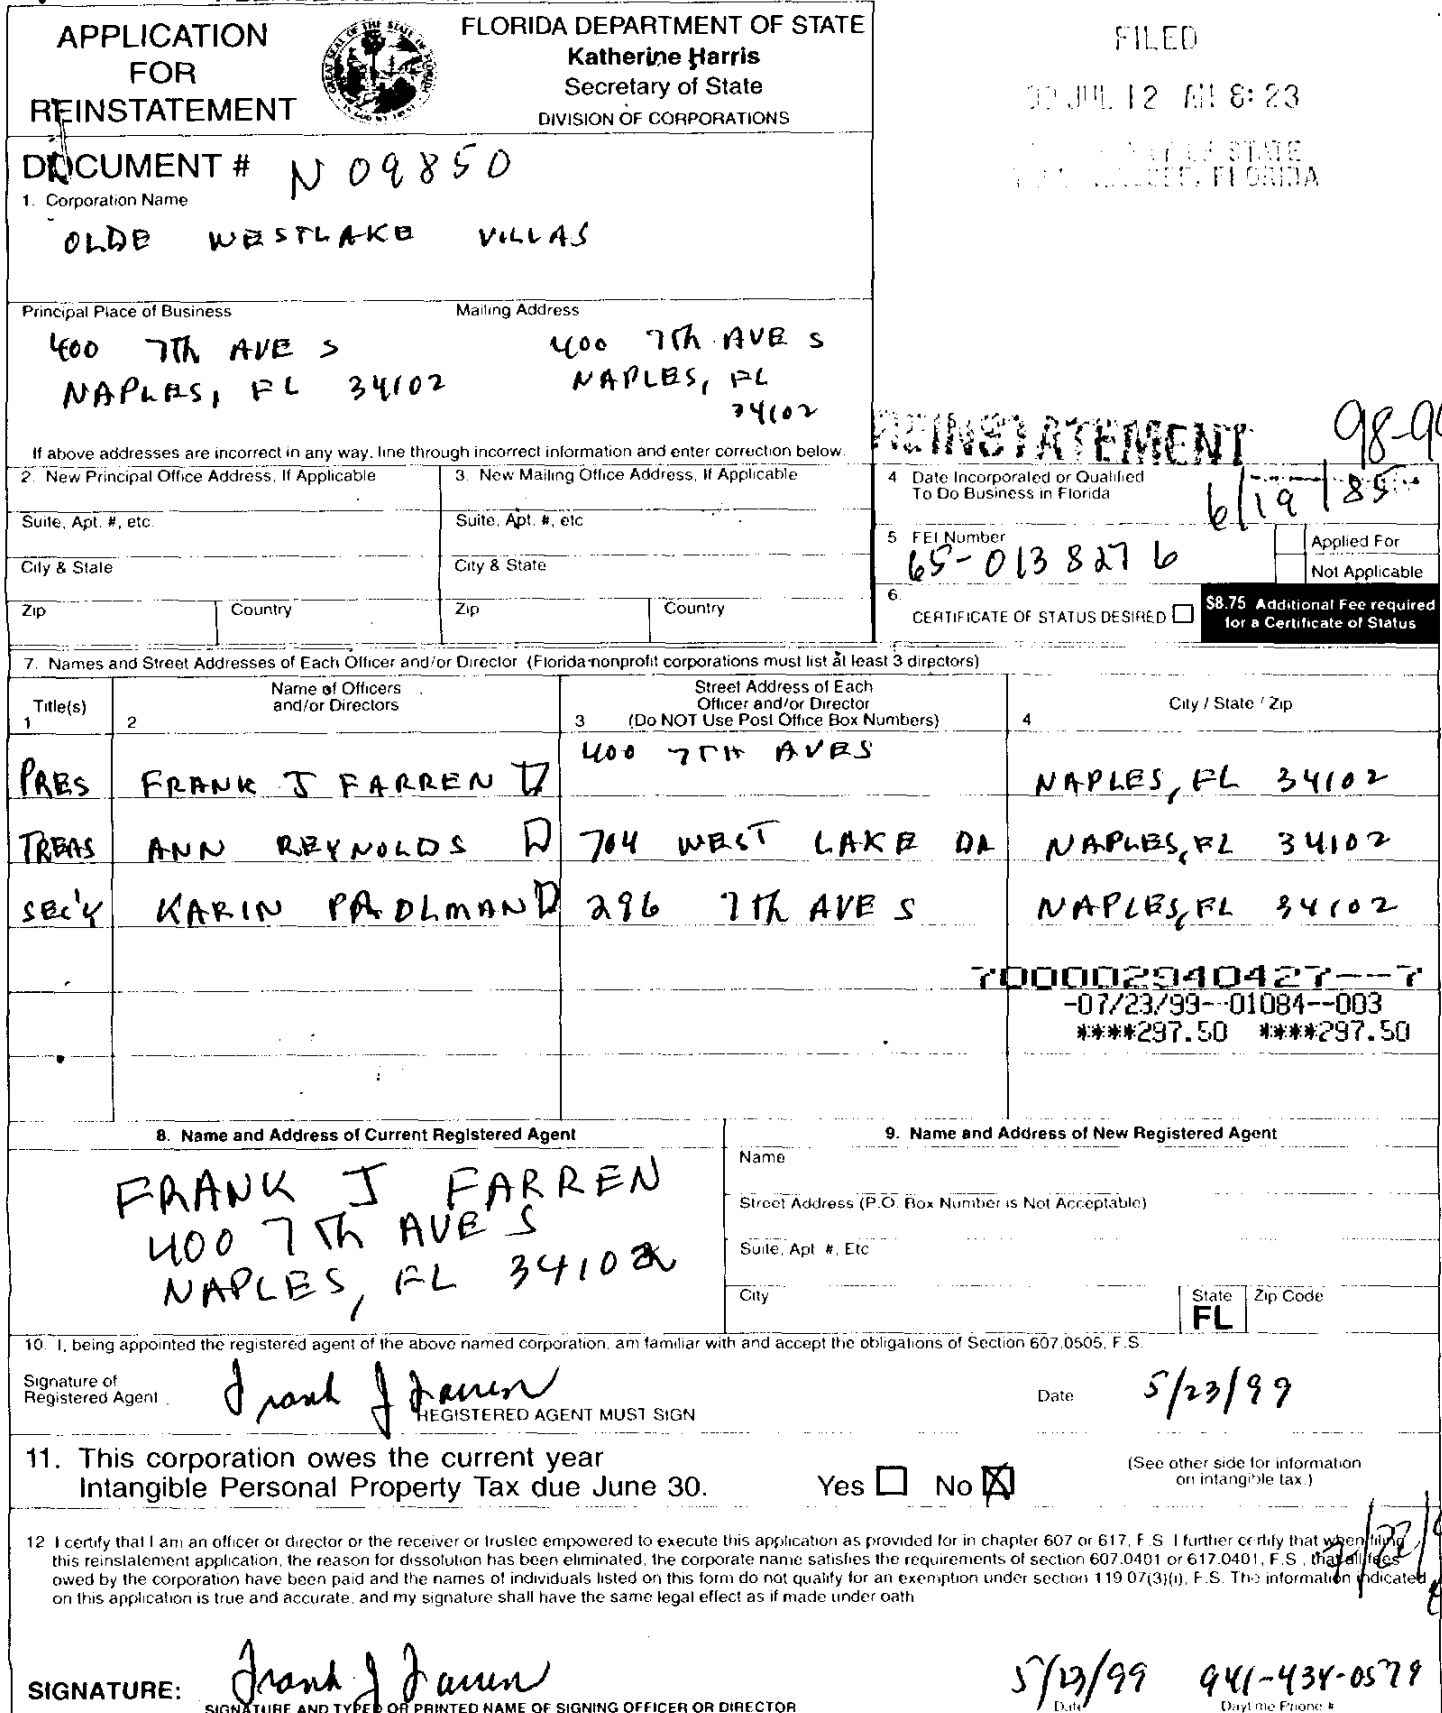 APPLICATION
FOR
REINSTATEMENT
FLORIDA DEPARTMENT OF STATE
Katherine Harris
Secretary of State
DIVISION OF CORPORATIONS
FILED
JUL 12 AM 8:23
STATE
FLORIDA
DOCUMENT # N09850
1. Corporation Name
OLDE WESTLAKE VILLAS
Principal Place of Business
400 7th AVE S
NAPLES, FL 34102
Mailing Address
400 7th AVE S
NAPLES, FL
34102
If above addresses are incorrect in any way, line through incorrect information and enter correction below.
REINSTATEMENT
2. New Principal Office Address, If Applicable
3. New Mailing Office Address, If Applicable
4 Date Incorporated or Qualified
To Do Business in Florida
6/19/85
Suite, Apt. #, etc.
Suite, Apt. #, etc
5 FEI Number
65-0138276
Applied For
Not Applicable
City & State
City & State
6.
CERTIFICATE OF STATUS DESIRED
$8.75 Additional Fee required
for a Certificate of Status
Zip
Country
Zip
Country
7. Names and Street Addresses of Each Officer and/or Director (Florida nonprofit corporations must list at least 3 directors)
Title(s)
1
Name of Officers
and/or Directors
2
Street Address of Each
Officer and/or Director
3 (Do NOT Use Post Office Box Numbers)
4
City / State / Zip
PRES FRANK J FARREN D 400 7TH AVE S NAPLES, FL 34102
TREAS ANN REYNOLDS D 704 WEST LAKE DR NAPLES, FL 34102
SEC'Y KARIN D 296 7th AVE S NAPLES, FL 34102
700002940427--7
-07/23/99--01084--003
****297.50 ****297.50
8. Name and Address of Current Registered Agent
FRANK J FARREN
400 7th AVE S
NAPLES, FL 34102
9. Name and Address of New Registered Agent
Name
Street Address (P.O. Box Number is Not Acceptable)
Suite, Apt #, Etc
City
State
FL
Zip Code
10. I, being appointed the registered agent of the above named corporation, am familiar with and accept the obligations of Section 607.0505, F.S.
Signature of
Registered Agent
Frank J Farren
REGISTERED AGENT MUST SIGN
Date
5/23/99
11. This corporation owes the current year
Intangible Personal Property Tax due June 30.
Yes
No X
(See other side for information
on intangible tax.)
12 I certify that I am an officer or director or the receiver or trustee empowered to execute this application as provided for in chapter 607 or 617, F.S. I further certify that when filing
this reinstatement application, the reason for dissolution has been eliminated, the corporate name satisfies the requirements of section 607.0401 or 617.0401, F.S., that all fees
owed by the corporation have been paid and the names of individuals listed on this form do not qualify for an exemption under section 119.07(3)(i), F.S. The information indicated
on this application is true and accurate, and my signature shall have the same legal effect as if made under oath
SIGNATURE:
Frank J Farren
SIGNATURE AND TYPED OR PRINTED NAME OF SIGNING OFFICER OR DIRECTOR
5/23/99
Date
941-434-0579
Daytime Phone #